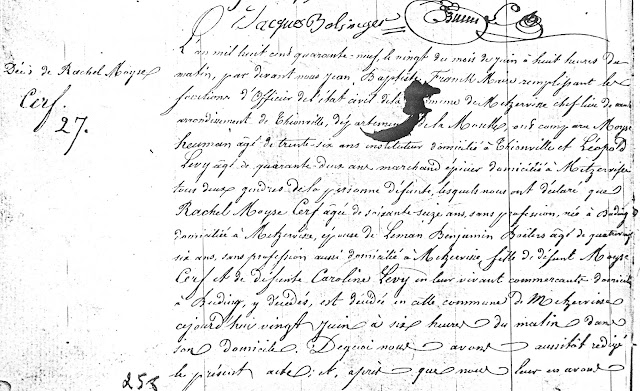 Jacques Bolzinger
Décès de Rachel Moyse
Cerf.
27.
L'an mil huit cent quarante-neuf, le vingt du mois de juin à huit heures du
matin, par devant nous Jean Baptiste Franck Maire remplissant les
fonctions d'Officier de l'état civil de la commune de Metzervisse chef lieu de
arrondissement de Thionville, département de la Moselle, ont comparu Moyse
heuman âgé de trente-six ans instituteur domicilié à Thionville et Léopold
Levy âgé de quarante-deux ans marchand épicier domicilié à Metzervisse
tous deux gendres de la personne défunte, lesquels nous ont déclaré que
Rachel Moyse Cerf âgée de soixante-seize ans, sans profession, née à Buding
domiciliée à Metzervisse, épouse de Leman Benjamin âgé de quatrevingt
six ans, sans profession aussi domicilié à Metzervisse, fille de défunt Moyse
Cerf et de défunte Caroline Levy en leur vivant commerçants domiciliés
à Buding, y décédés, est décédé en cette commune de Metzervisse
aujourd'hui vingt juin à six heures du matin dans
son domicile. De quoi nous avons aussitôt rédigé
le présent acte; et, après que nous leur en avons
258